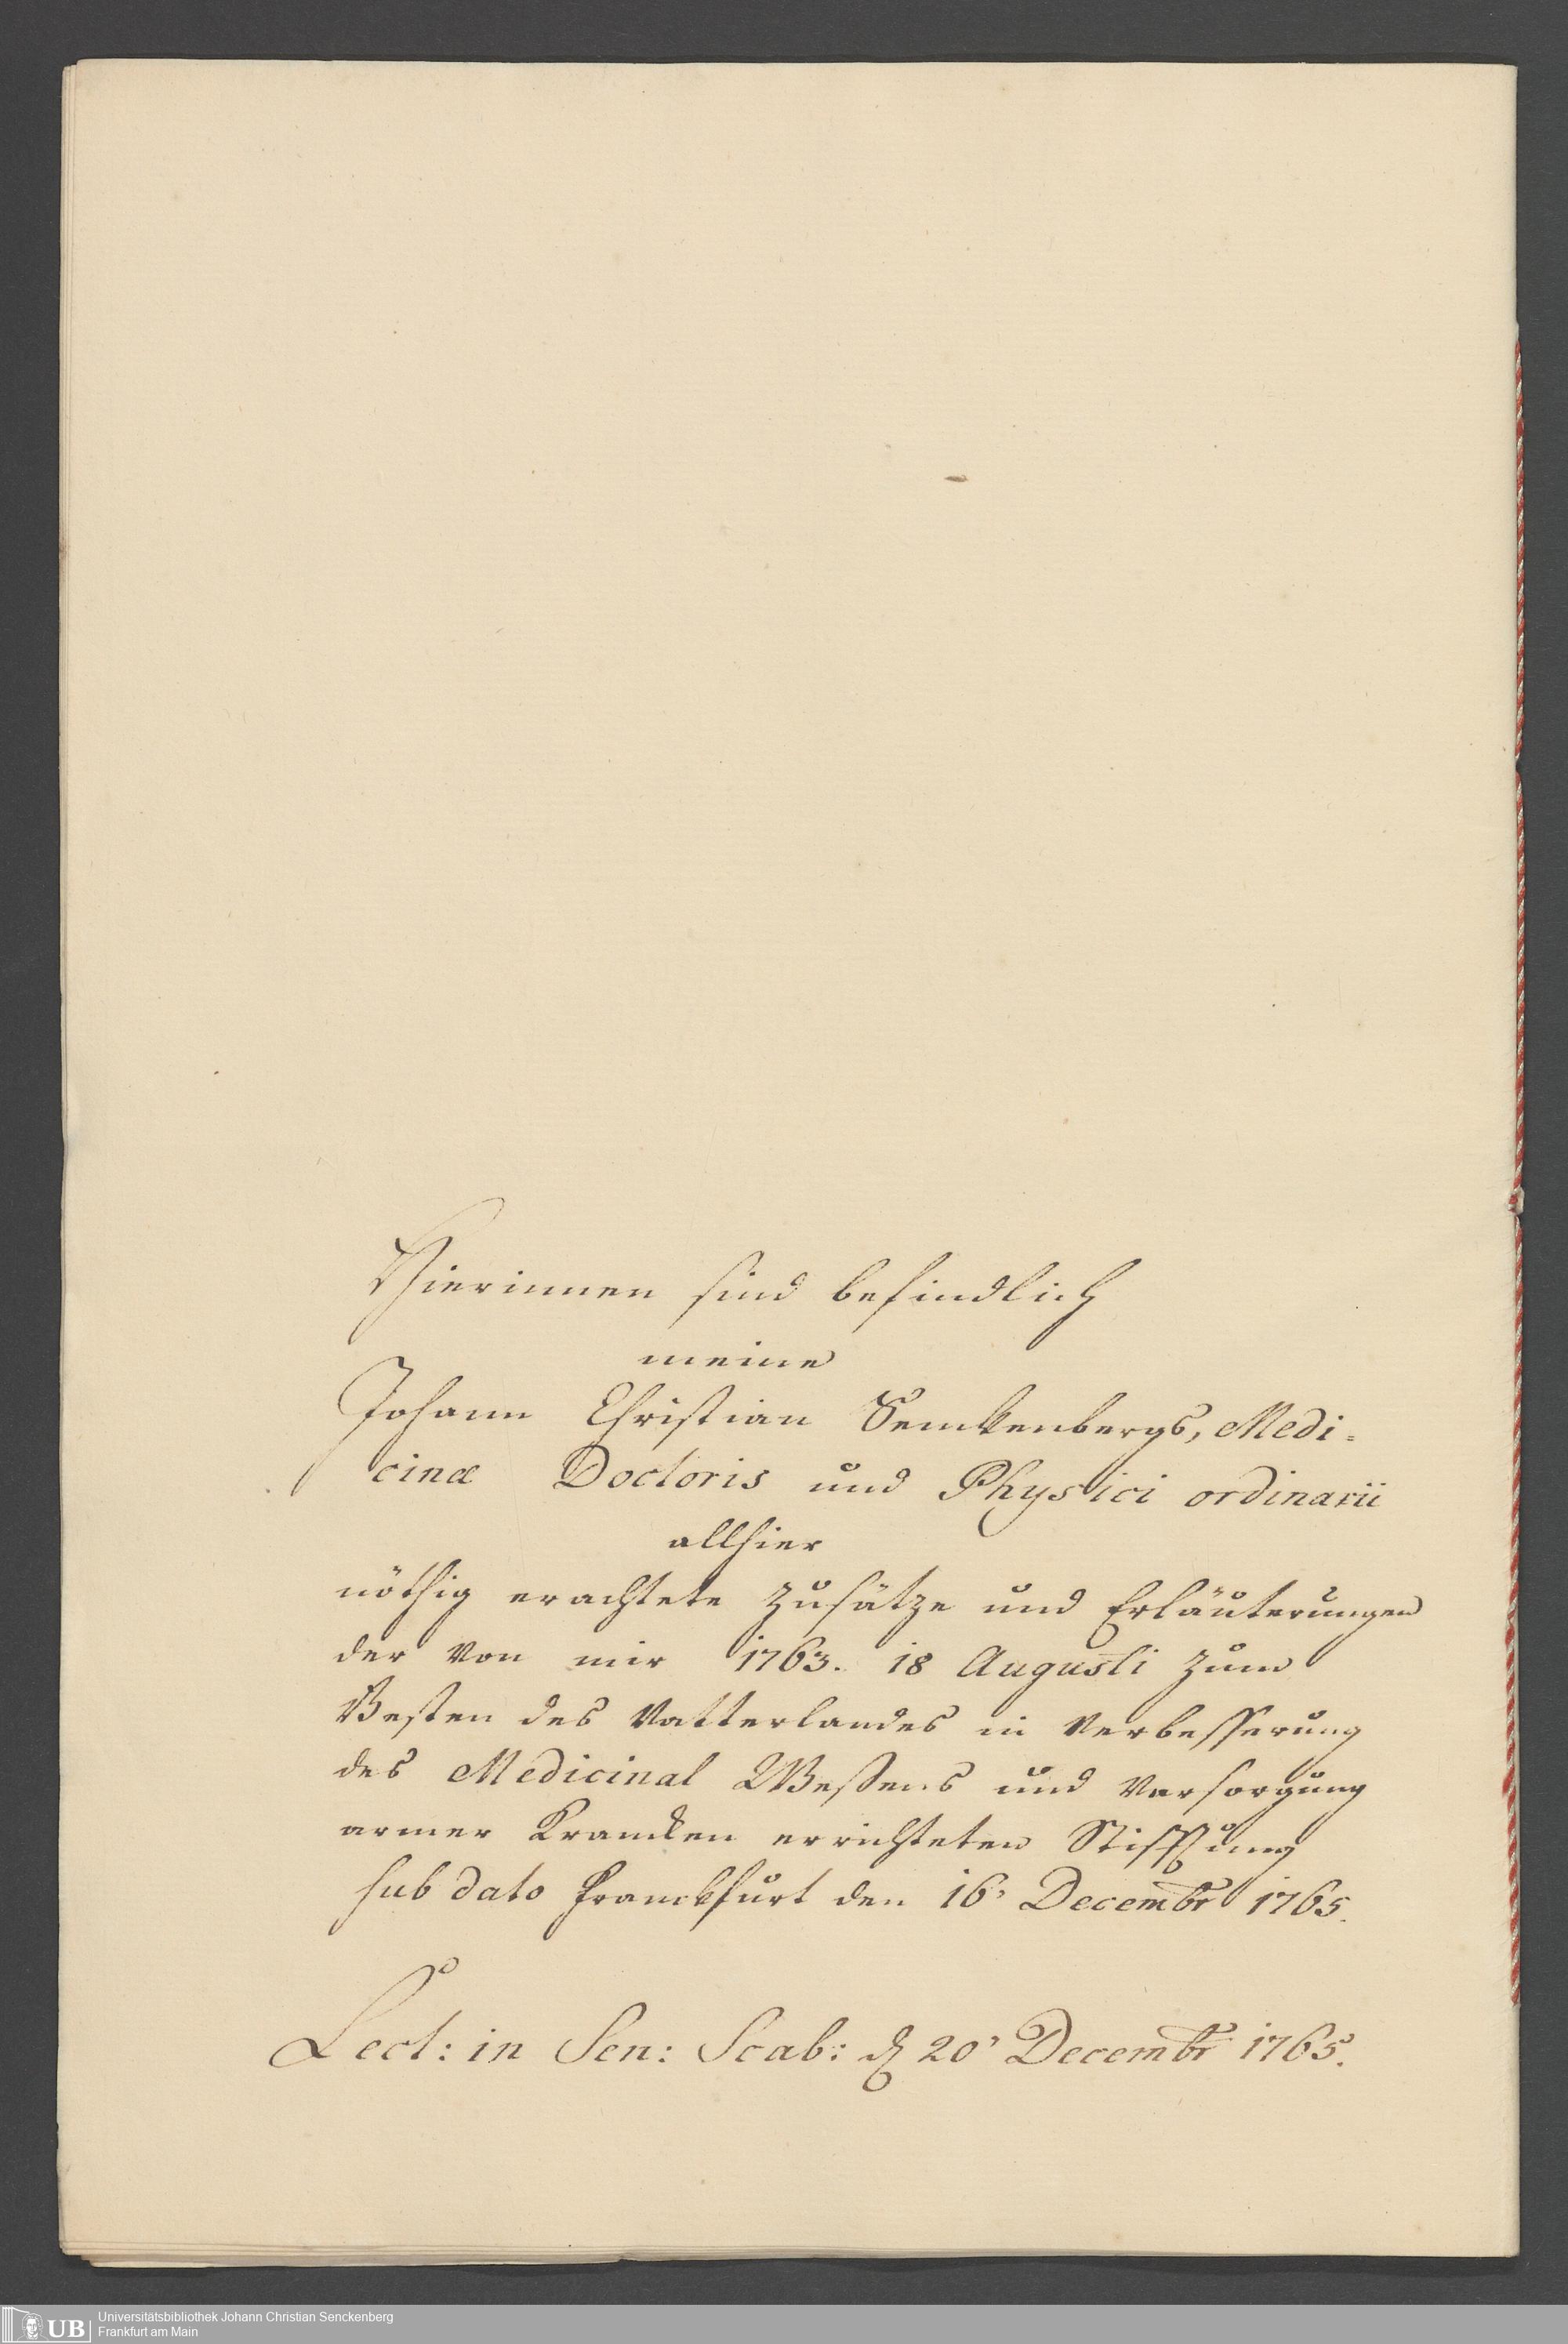 Hierinnen sind befindlich
meine
Johann Christian Senckenbergs, Medi=
cinæ Doctoris und Physici ordinarii
allhier
nöthig erachtete Zusätze und Erläuterungen
der von mir 1763. 18 Augusti zum
Besten des Vatterlandes in Verbesserung
des Medicinal Weßens und Versorgung
armer Krancken errichteten Stifftung
sub dato Franckfurt den 16' Decembr 1765.
Lect: in Sen: Scab: d 20' Decembr 1765.
UB
Universitätsbibliothek Johann Christian Senckenberg
Frankfurt am Main